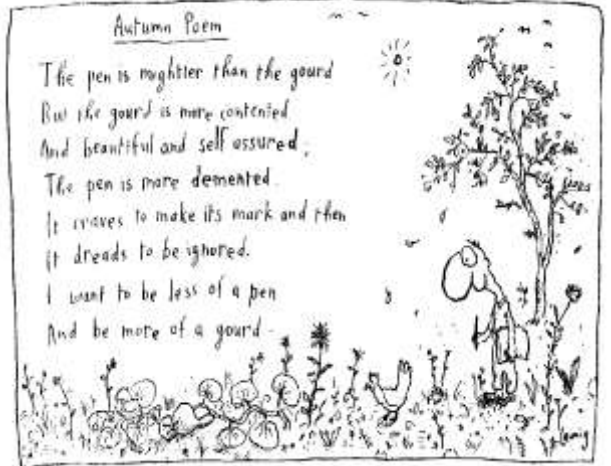 Autumn Poem
The pen is mightier than the gourd
But the gourd is more contented
And beautiful and self assured;
The pen is more demented.
It craves to make its mark and then
It dreads to be ignored.
I want to be less of a pen
And be more of a gourd.
Leunig